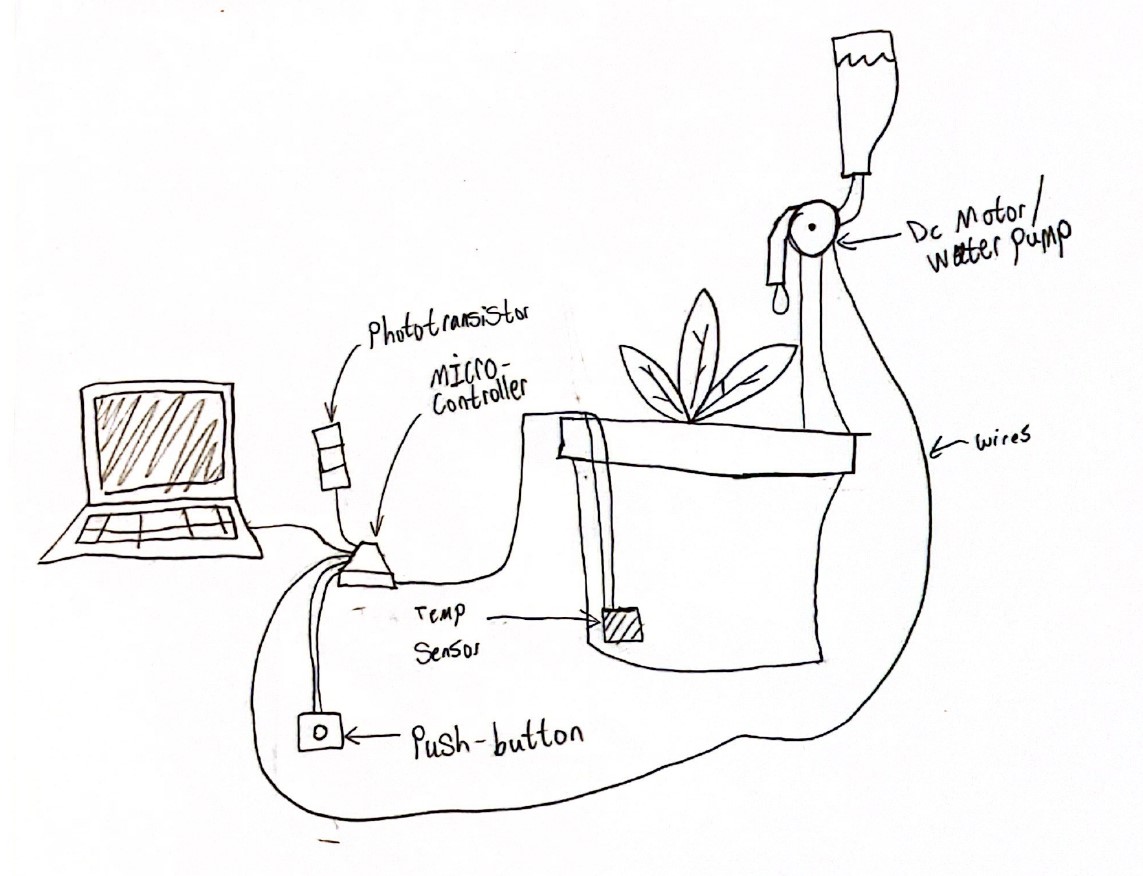 Dc Motor/
Water Pump
Phototransistor
Micro-
Controller
wires
Temp
Sensor
Push-button